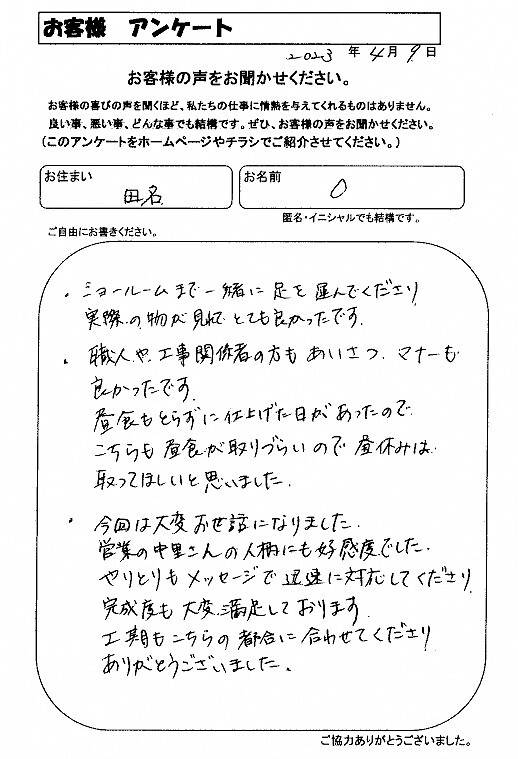 お客様 アンケート
2023 年 4月 9 日
お客様の声をお聞かせください。
お客様の喜びの声を聞くほど、私たちの仕事に情熱を与えてくれるものはありません。
良い事、悪い事、どんな事でも結構です。ぜひ、お客様の声をお聞かせください。
(このアンケートをホームページやチラシでご紹介させてください。)
お住まい 田名
お名前 O
匿名・イニシャルでも結構です。
ご自由にお書きください。
・ショールームまで一緒に足を運んでくださり
実際の物が見れてとても良かったです。
・職人や工事関係者の方もあいさつ、マナーも
良かったです。
昼食もとらずに仕上げた日があったので
こちらも昼食が取りづらいので昼休みは
取ってほしいと思いました。
・今回は大変お世話になりました。
営業の中里さんの人柄にも好感度でした。
やりとりもメッセージで迅速に対応してくださり
完成度も大変満足しております。
工期もこちらの都合に合わせてくださり
ありがとうございました。
ご協力ありがとうございました。